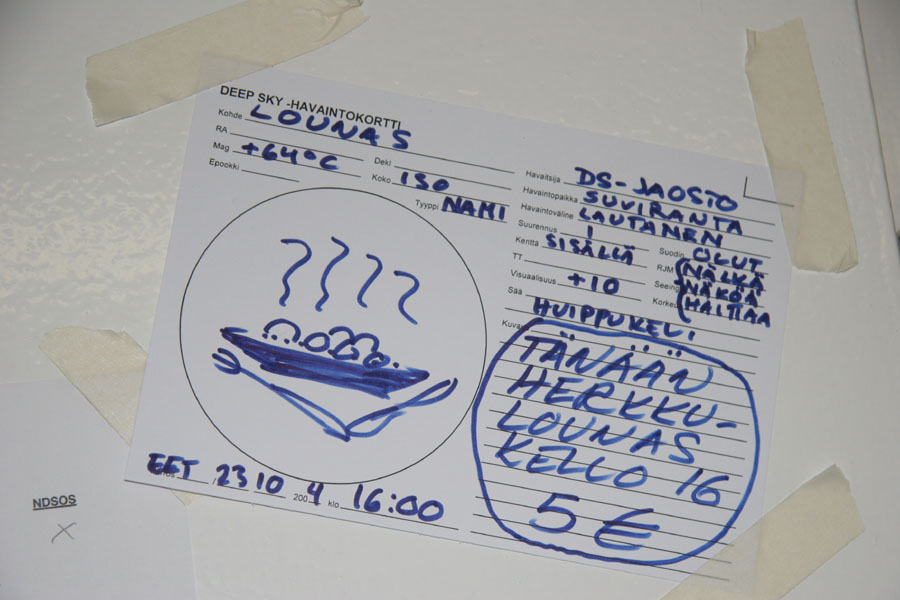 DEEP SKY -HAVAINTOKORTTI
Kohde LOUNAS
RA
Dekl
Mag +64°C
Koko ISO
Epookki
Tyyppi NAMI
Havaitsija DS-JAOSTO
Havaintopaikka SUVIRANTA
Havaintoväline LAUTANEN
Suurennus 1
Suodin OLUT
Kenttä SISÄLLÄ
RJM NÄLKÄ
TT
Seeing NÄKÖÄ
Visuaalisuus +10
Korkeus HAITTAA
Sää HUIPPUKELI
Kuvaus
TÄNÄÄN
HERKKU-
LOUNAS
KELLO 16
5 €
EET 23 10 2004 klo 16:00
NDSOS
X